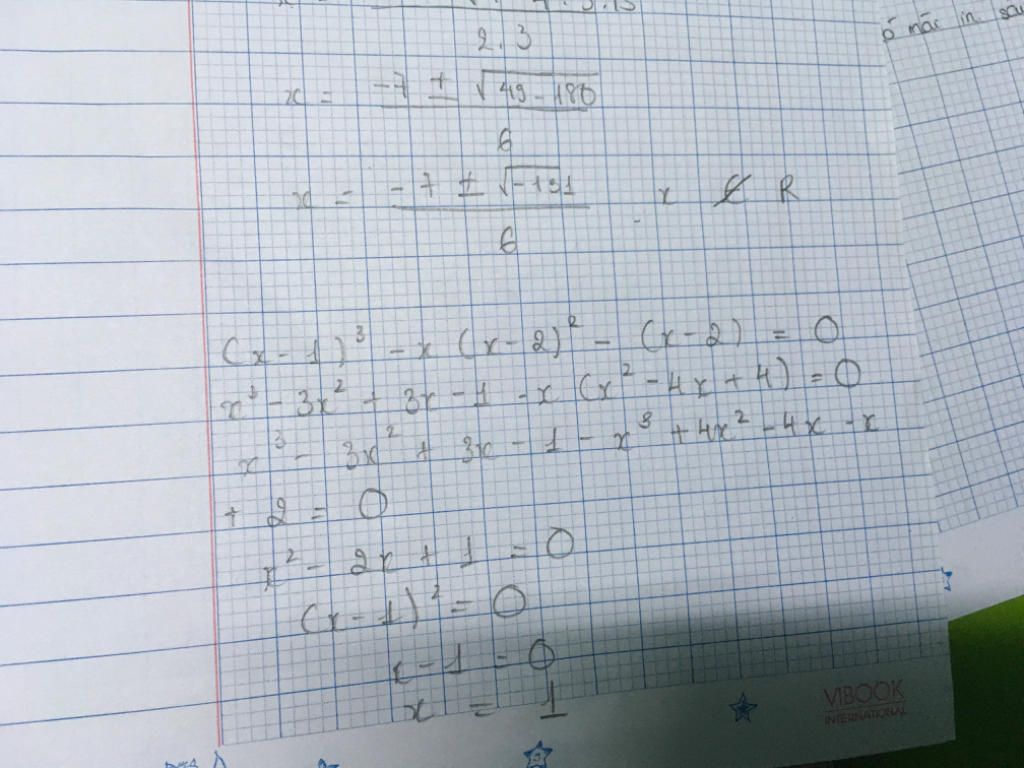 2.3
x = -7 ± √49-180
6
x = -7 ± √-131 x ∉ R
6
(x-1)³ - x (x-2)² - (x-2) = 0
x³ - 3x² + 3x - 1 - x (x² - 4x + 4) = 0
x³ - 3x² + 3x - 1 - x³ + 4x² - 4x - x
+ 2 = 0
x² - 2x + 1 = 0
(x-1)² = 0
x-1 = 0
x = 1
VIBOOK
INTERNATIONAL